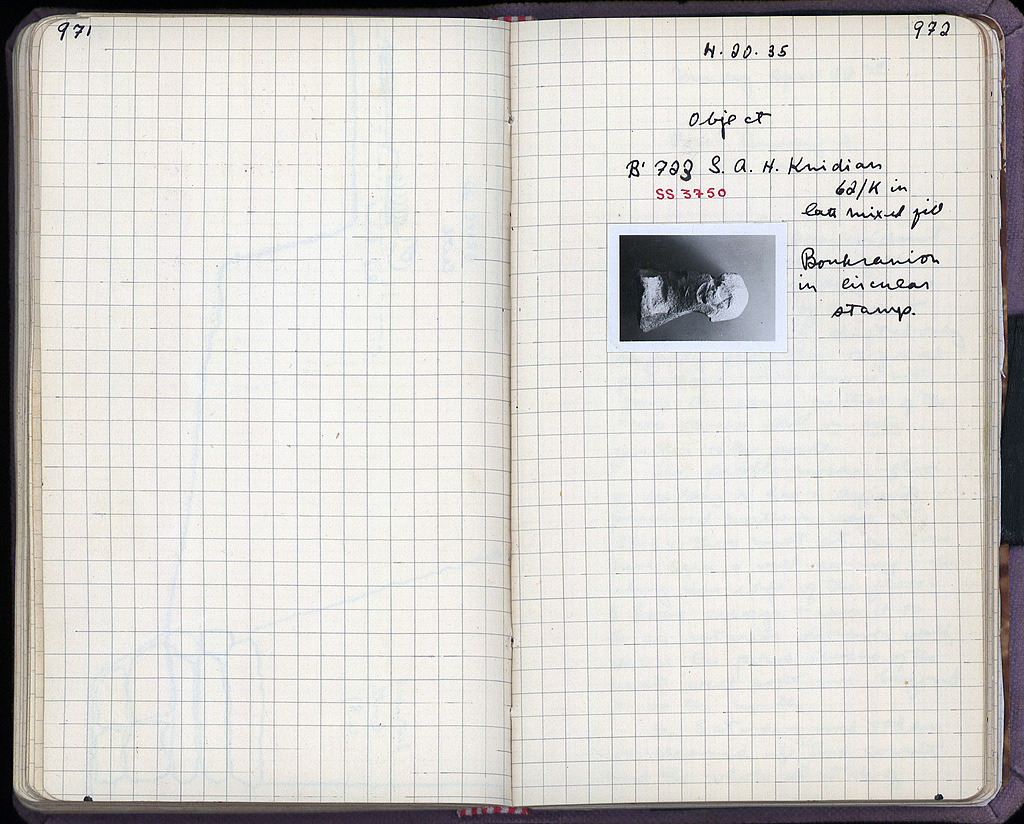 971
972
4. 20. 35
Object
B' 723 S. A. H. Knidian
SS 3750
62/K in
late mixed fill
Boukranion
in circular
stamp.